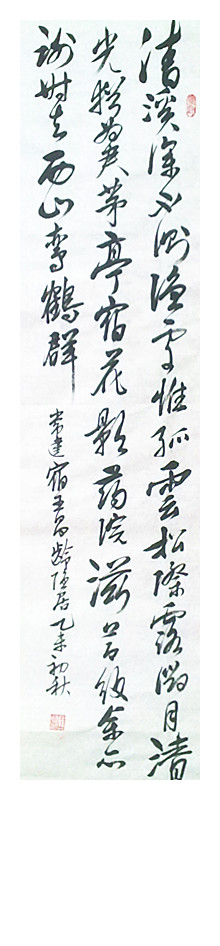 清溪深不测隐处惟孤雲松際露微月清
光猶為君茅亭宿花影药院滋苔纹余亦
谢時去西山鸾鶴群
常建宿王昌龄隐居乙未初秋